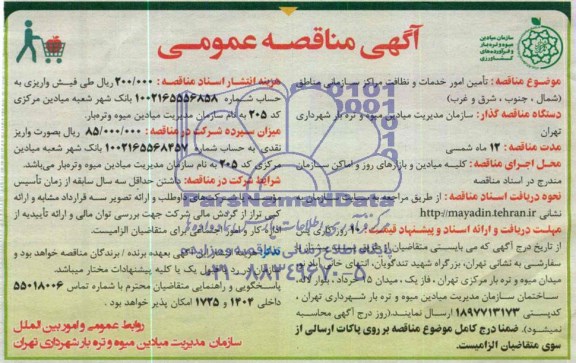 سازمان میادین
میوه و تره بار
و فرآورده‌های
کشاورزی
آگهی مناقصه عمومی
موضوع مناقصه: تأمین امور خدمات و نظافت مراکز سازمانی مناطق
(شمال ، جنوب ، شرق و غرب)
دستگاه مناقصه گذار: سازمان مدیریت میادین میوه و تره بار شهرداری
تهران
مدت مناقصه: ۱۲ ماه شمسی
محل اجرای مناقصه: کلیه میادین و بازارهای روز و اماکن سازمان
مندرج در اسناد مناقصه
نحوه دریافت اسناد مناقصه: از طریق مراجعه به وب سایت سازمان به
نشانی http://mayadin.tehran.ir
مهلت دریافت و ارائه اسناد و پیشنهاد قیمت: ۱۰ روز کاری پس
از تاریخ درج آگهی که می بایستی متقاضیان از طریق پست
سفارشی به نشانی تهران، بزرگراه شهید تندگویان، انتهای
میدان میوه و تره بار مرکزی تهران ، فاز یک ، میدان ۱۵ خرداد، بلوار لاله،
ساختمان سازمان مدیریت میادین میوه و تره بار شهرداری تهران ،
کدپستی ۱۸۹۷۷۱۳۱۷۳ ارسال نمایند.(روز درج آگهی محاسبه
نمیشود). ضمنا درج کامل موضوع مناقصه بر روی پاکات ارسالی از
سوی متقاضیان الزامیست.
هزینه انتشار اسناد مناقصه : ۲۰۰/۰۰۰ ریال طی فیش واریزی به
حساب شماره ۱۰۰۲۱۶۵۵۵۶۸۵۸ بانک شهر شعبه میادین مرکزی
کد ۲۰۵ به نام سازمان مدیریت میادین میوه وتره بار.
میزان سپرده شرکت در مناقصه: ۸۵/۰۰۰/۰۰۰ ریال بصورت واریز
نقدی به حساب شماره ۱۰۰۲۱۶۵۵۶۸۴۵۷ بانک شهر شعبه میادین
مرکزی کد ۲۰۵ به نام سازمان مدیریت میادین میوه وتره‌بار می‌باشد.
شرایط شرکت در مناقصه: داشتن حداقل سه سال سابقه از زمان تأسیس
داوطلب و ارائه تصویر سه قرارداد مشابه و ارائه
کپی تراز از گردش مالی شرکت جهت بررسی توان مالی و ارائه تأییدیه از
اداره کار و امور اجتماعی برای متقاضیان الزامیست.
تذکر: هزینه نوبتهای آگهی بعهده برنده / برندگان مناقصه خواهد بود و
سازمان در رد یا قبول یک یا کلیه پیشنهادات مختار میباشد.
پاسخگویی و راهنمایی متقاضیان محترم با شماره تماس ۵۵۰۱۸۰۰۶
داخلی ۱۴۰۲ و ۱۷۲۵ امکان پذیر خواهد بود .
روابط عمومی و امور بین الملل
سازمان مدیریت میادین میوه و تره بار شهرداری تهران
ParsNamadData
پایگاه اطلاع رسانی مناقصه و مزایده
۰۲۱-۸۸۳۴۹۶۷۰-۵